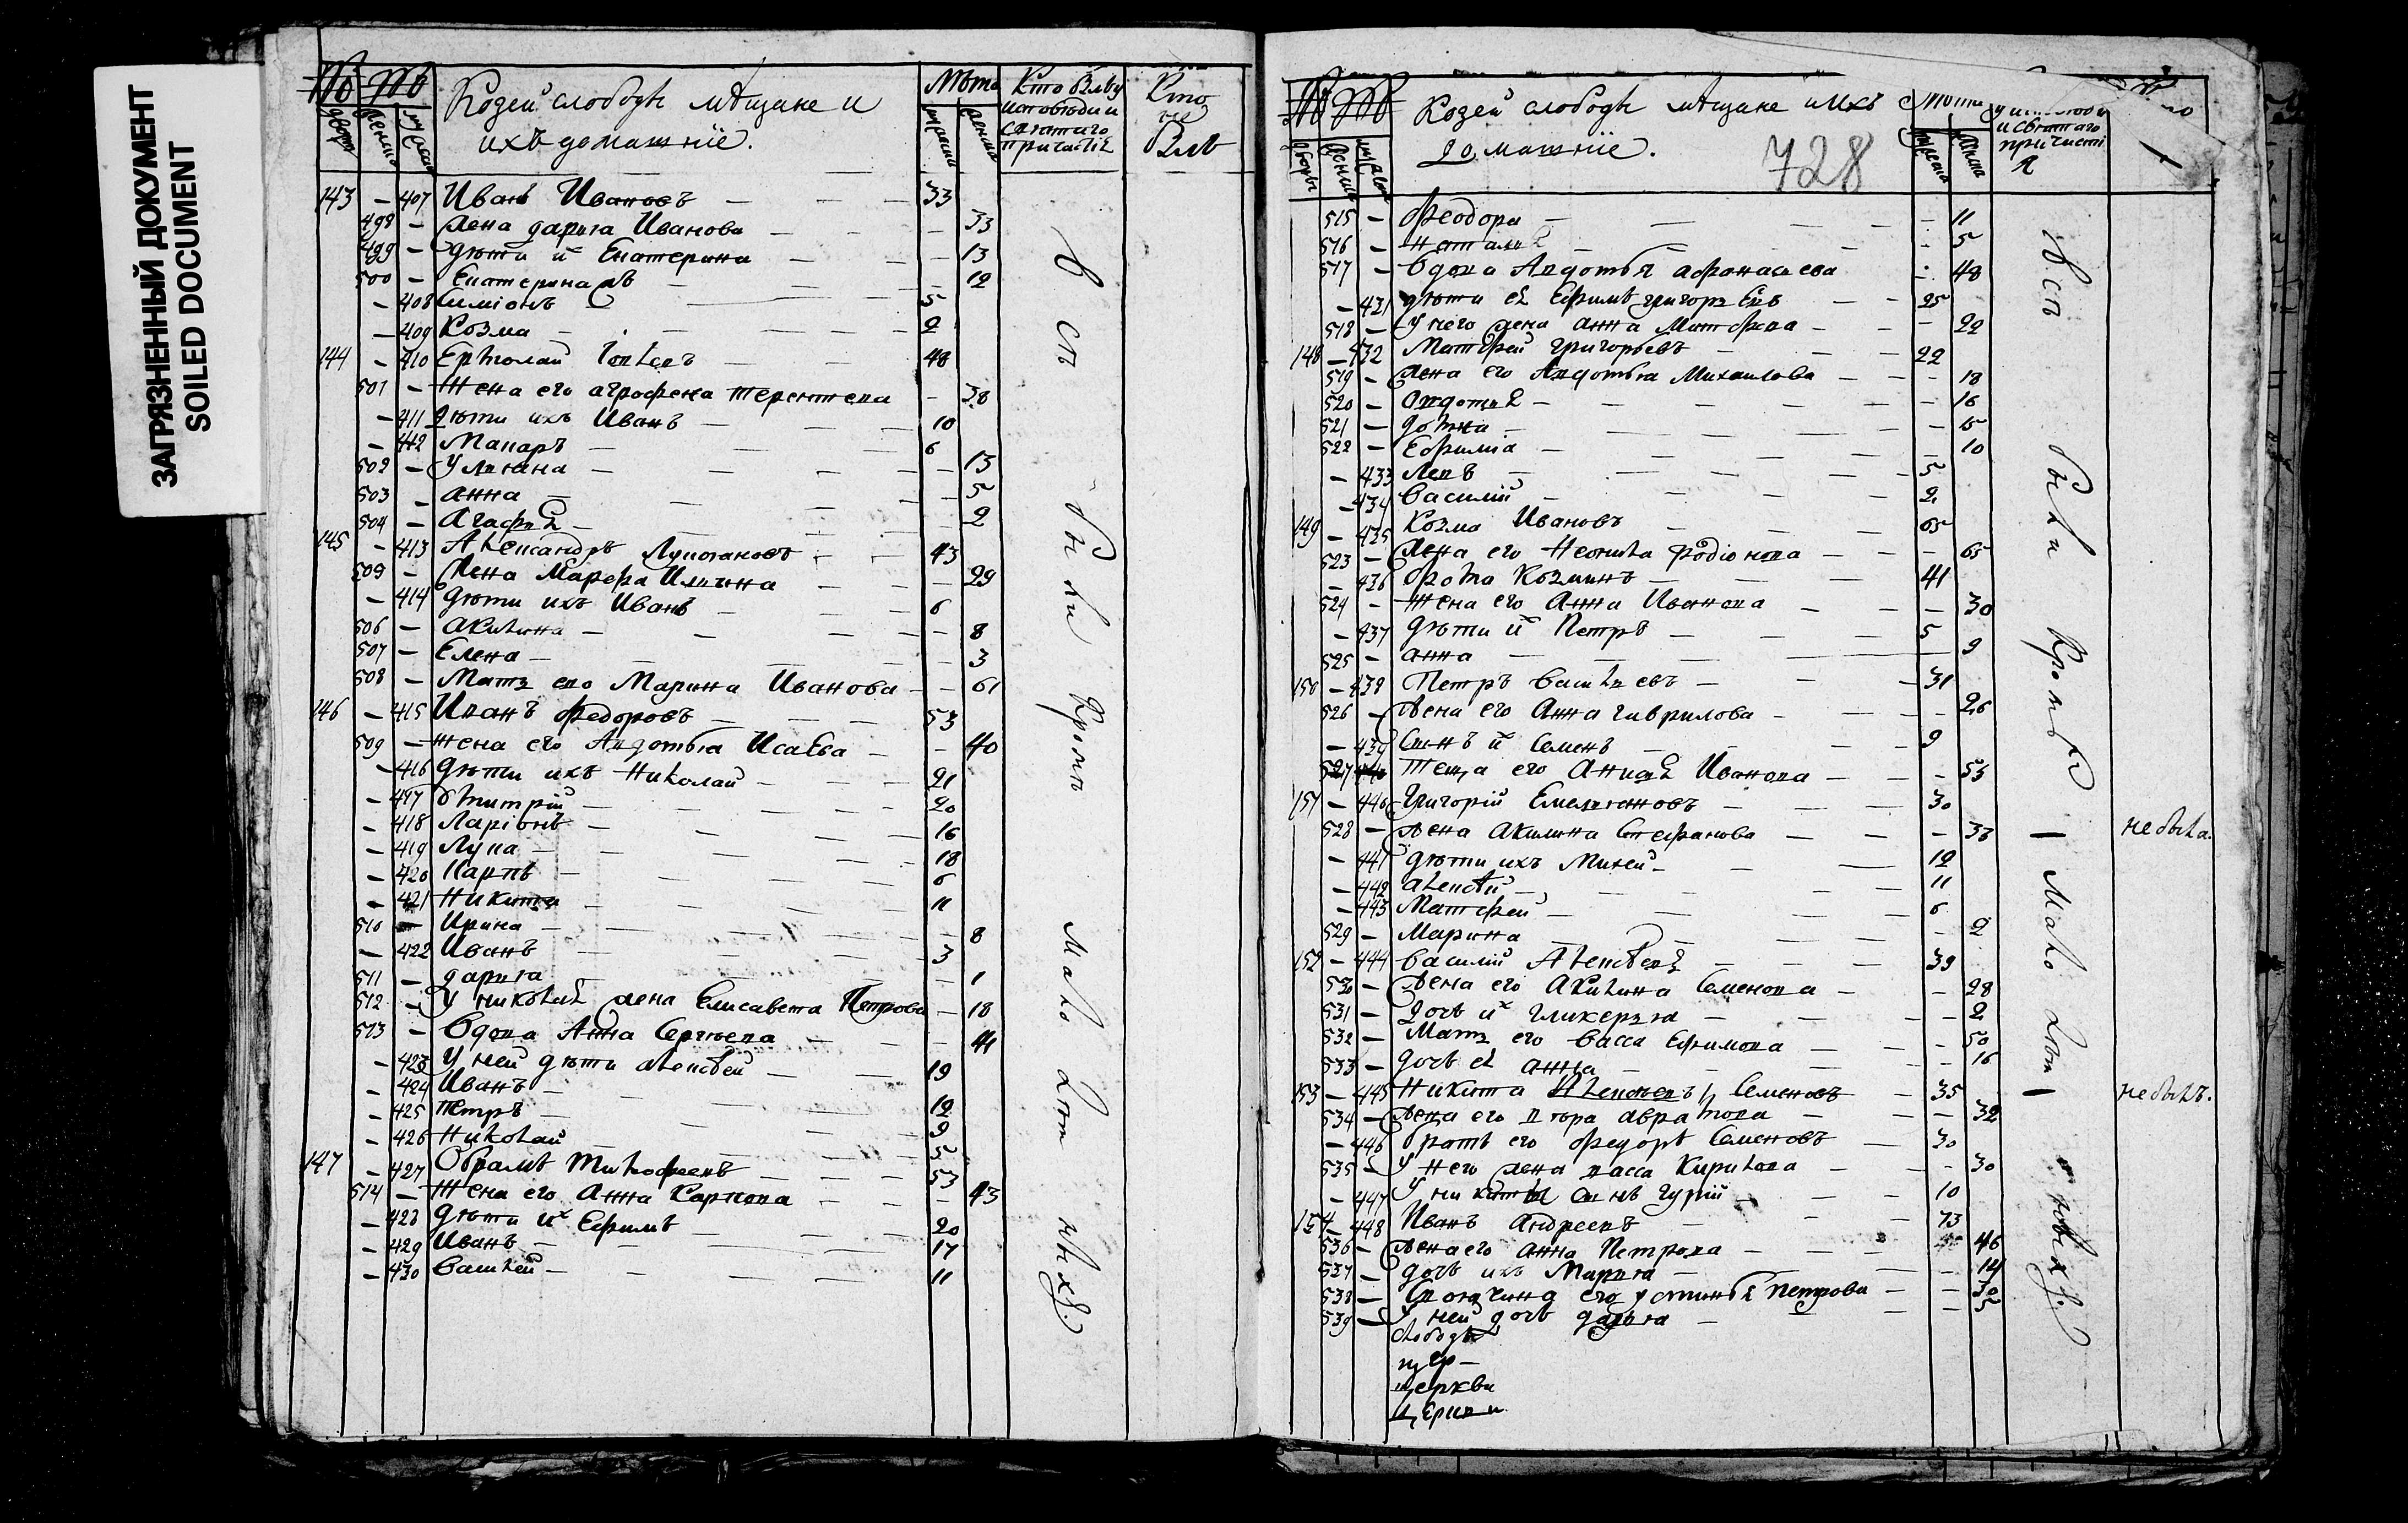 ЗАГРЯЗНЕННЫЙ ДОКУМЕНТ
SOILED DOCUMENT
Козей слободы мѣщане и
ихъ домашнїе.
лѣта
Кто былъ у
исповѣди и
святаго
причастїя
Кто
не
былъ
143 — 407 Иванъ Ивановъ — 33
498 — жена дарья Иванова — 33
499 — дѣти их Екатерина — 13
500 — Екатерина — 12
— 408 Симіонъ — 5
— 409 Козма — 2
144 — 410 Ермолай — 48
501 — жена его агрофена терентева — 38
— 411 дѣти ихъ Иванъ — 10
— 412 Макаръ — 6
502 — Улияна — 13
503 — анна — 5
504 — Агафия — 2
145 — 413 Александръ — 43
505 — жена Марфа — 29
— 414 дѣти ихъ Иванъ — 6
506 — акилина — 8
507 — Елена — 3
508 — Мать его Марина Иванова — 61
146 — 415 Иванъ федоровъ — 53
509 — жена его Авдотья Исаева — 40
— 416 дѣти ихъ Николай — 21
— 417 дмитрій — 20
— 418 Ларіонъ — 16
— 419 Лупа — 18
— 420 Карпъ — 6
— 421 Никита — 11
510 — Ирина — 8
— 422 Иванъ — 3
511 — дарья — 1
512 — У николая жена Елисавета Петрова — 18
513 — Вдова Анна Сергѣева — 41
— 423 У ней дѣти алексѣй — 19
— 424 Иванъ —
— 425 петръ — 12
— 426 Николай — 9
5
147 — 427 Обрамъ тимофеевъ — 53
514 — жена его Анна Карпова — 43
— 428 дѣти их Ефимъ — 20
— 429 Иванъ — 17
— 430 василей — 11
всѣ были кромѣ малолѣтныхъ.
Козей слободы мѣщане и ихъ
домашнїе.
728
лѣта
исповѣди
и святаго
причасті
я
515 — феодора — 11
516 — наталия — 5
517 — вдова Авдотья афонасева — 48
— 431 дѣти ея Ефимъ григорьевъ — 25
518 — У него жена анна Матфева — 22
148 — 432 Матфей григорьевъ — 22
519 — жена его Авдотья Михаилова — 18
520 — авдотия — 16
521 — домна — 15
522 — Ефимія — 10
— 433 Левъ — 5
— 434 василій — 2
149 — 435 Козма Ивановъ — 65
523 — жена его Неонила родіонова — 65
— 436 фома Козминъ — 41
524 — жена его Анна Иванова — 30
— 437 дѣти их Петръ — 5
525 — анна — 9
150 — 438 Петръ василевъ — 31
526 — жена его Анна гаврилова — 26
— 439 Синъ их Семенъ — 9
527 теща его Иванова — 55
151 — 440 Григорій Емельяновъ — 30
528 — жена акилина Стефанова — 33 не была.
— 441 дѣти ихъ Михей — 12
— 442 алексѣй — 11
— 443 Матфей — 6
529 — Марина — 2
152 — 444 василій Алексѣевъ — 39
530 — жена его акилина Семенова — 28
531 — дочь их гликерья — 2
532 — Мать его васса Ефимова — 50
533 — дочь ея анна — 16
153 — 445 Никита Семеновъ — 35 не былъ.
534 — жена его авраамова — 32
— 446 братъ его федоръ Семеновъ — 30
535 — У него жена васса Кирилова — 30
— 447 У никиты синъ гурій — 10
154 — 448 Иванъ андреевъ — 73
536 — жена его анна Петрова — 46
537 — дочь ихъ Марья — 14
538 — его устинья петрова — 30
539 — У ней дочь дарья — 5
слободы
церкви
всѣ были кромѣ малолѣтныхъ.